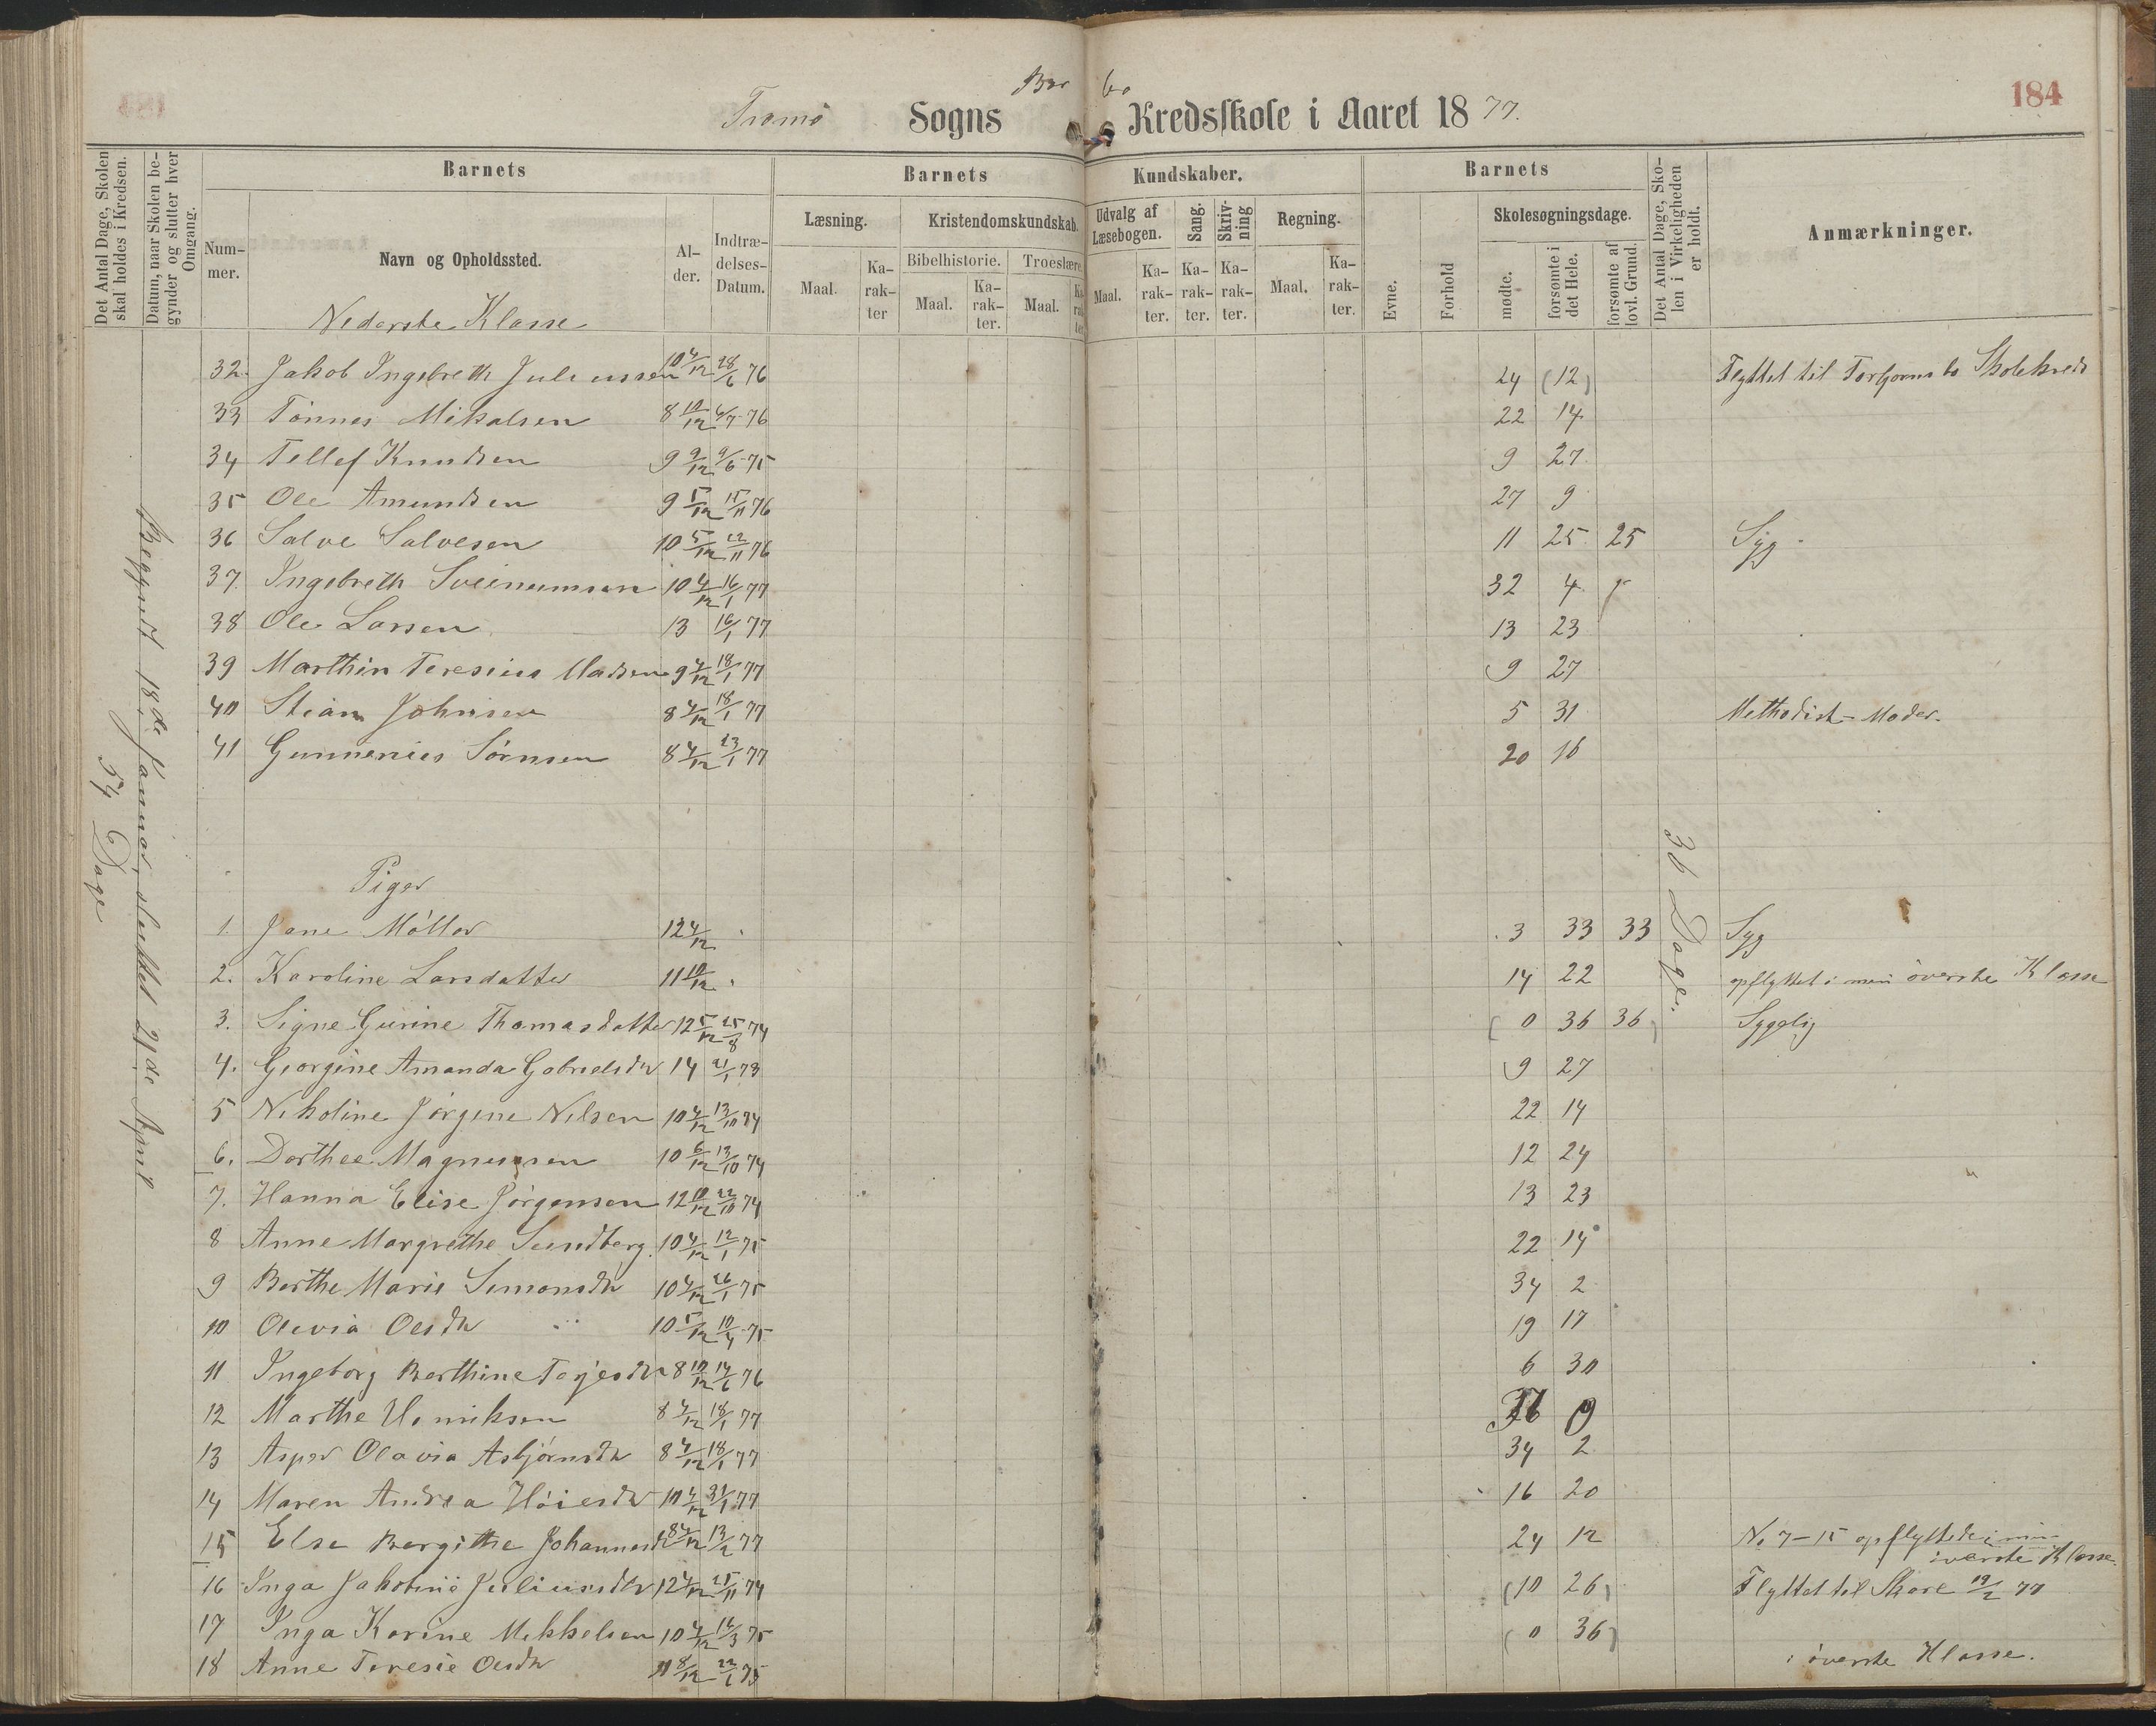 184
Tromø Sogns Barbo Kredsskole i Aaret 1877.
Det Antal Dage, Skolen skal holdes i Kredsen.
Datum, naar Skolen begynder og slutter hver Omgang.
Barnets
Barnets Kundskaber.
Barnets
Det Antal Dage, Skolen i Virkeligheden er holdt.
Anmærkninger.
Nummer.
Navn og Opholdssted.
Alder.
Indtrædelses-Datum.
Læsning.
Kristendomskundskab.
Udvalg af Læsebogen.
Sang.
Skrivning
Regning.
Skolesøgningsdage.
Bibelhistorie.
Troeslære.
Maal. Karakter
Maal. Karakter.
Maal.
Maal. Karakter.
Karakter.
Karakter.
Maal. Karakter.
Evne.
Forhold
mødte.
forsømte i det Hele.
forsømte af lovl. Grund.
Nederste Klasse
32. Jakob Ingebreth Juliussen 10 4/12 28/6 76 24 (12) Flyttet til Skolekreds
33 Tønnes Mikalsen 8 10/12 4/7 76 22 14
34 Tellef Knudsen 9 9/12 9/6 75 9 27
35 Ole Amundsen 9 5/12 15/11 76 27 9
36 Salve Salvesen 10 5/12 22/11 76 11 25 25 Syg
37. Ingebreth Sveinumsen 10 4/12 16/1 77 32 4
38 Ole Larsen 13 16/1 77 13 23
39 Marthin Teresius Madsen 9 4/12 18/1 77 9 27
40 Stian Johnsen 8 4/12 18/1 77 5 31 Methodist-Moder.
41 Gunnerius Sørnsen 8 4/12 23/1 77 20 16
Begyndt 18de Januar, sluttet 21de April
54 Dage
36 Dage.
Piger
1. Jane Møller 12 4/12 3 33 33 Syg
2. Karoline Larsdatter 11 10/12 14 22 opflyttet i min øverste Klasse
3. Signe Gurine Thomasdatter 12 5/12 25/8 74 (0 36 36) Sygelig
4. Georgine Amanda Gabrielsdtr 14 21/1 73 9 27
5 Nikoline Jørgine Nilsen 10 4/12 13/10 74 22 14
6. Dorthee Magnussen 10 6/12 13/10 74 12 24
7. Hanna Elise Jørgensen 12 10/12 22/10 74 13 23
8 Anne Margrethe Sundberg 10 4/12 12/1 75 22 14
9 Berthe Marie Simonsdtr 10 4/12 26/1 75 34 2
10 Olevia Olsdtr 10 5/12 10/4 75 19 17
11 Ingeborg Berthine Terjesdtr 8 10/12 14/6 76 6 30
12 Marthe Henriksen 8 4/12 18/1 77 36 0
13 Asper Olavia Asbjørnsdtr 8 4/12 18/1 77 34 2
14 Maren Andrea Høiesdtr 10 4/12 31/1 77 16 20
15 Else Bergithe Johannesdtr 8 4/12 13/2 77 24 12 No 7-15 opflyttede i min øverste Klasse.
16 Inga Jakobine Juliusdtr 12 4/12 25/11 74 (10 26) Flyttet til Skare 19/2 77
17 Inga Karine Mikkelsen 10 4/12 16/3 75 (0 36)
18 Anne Teresie Olsdtr 11 8/12 22/1 75 i øverste Klasse.